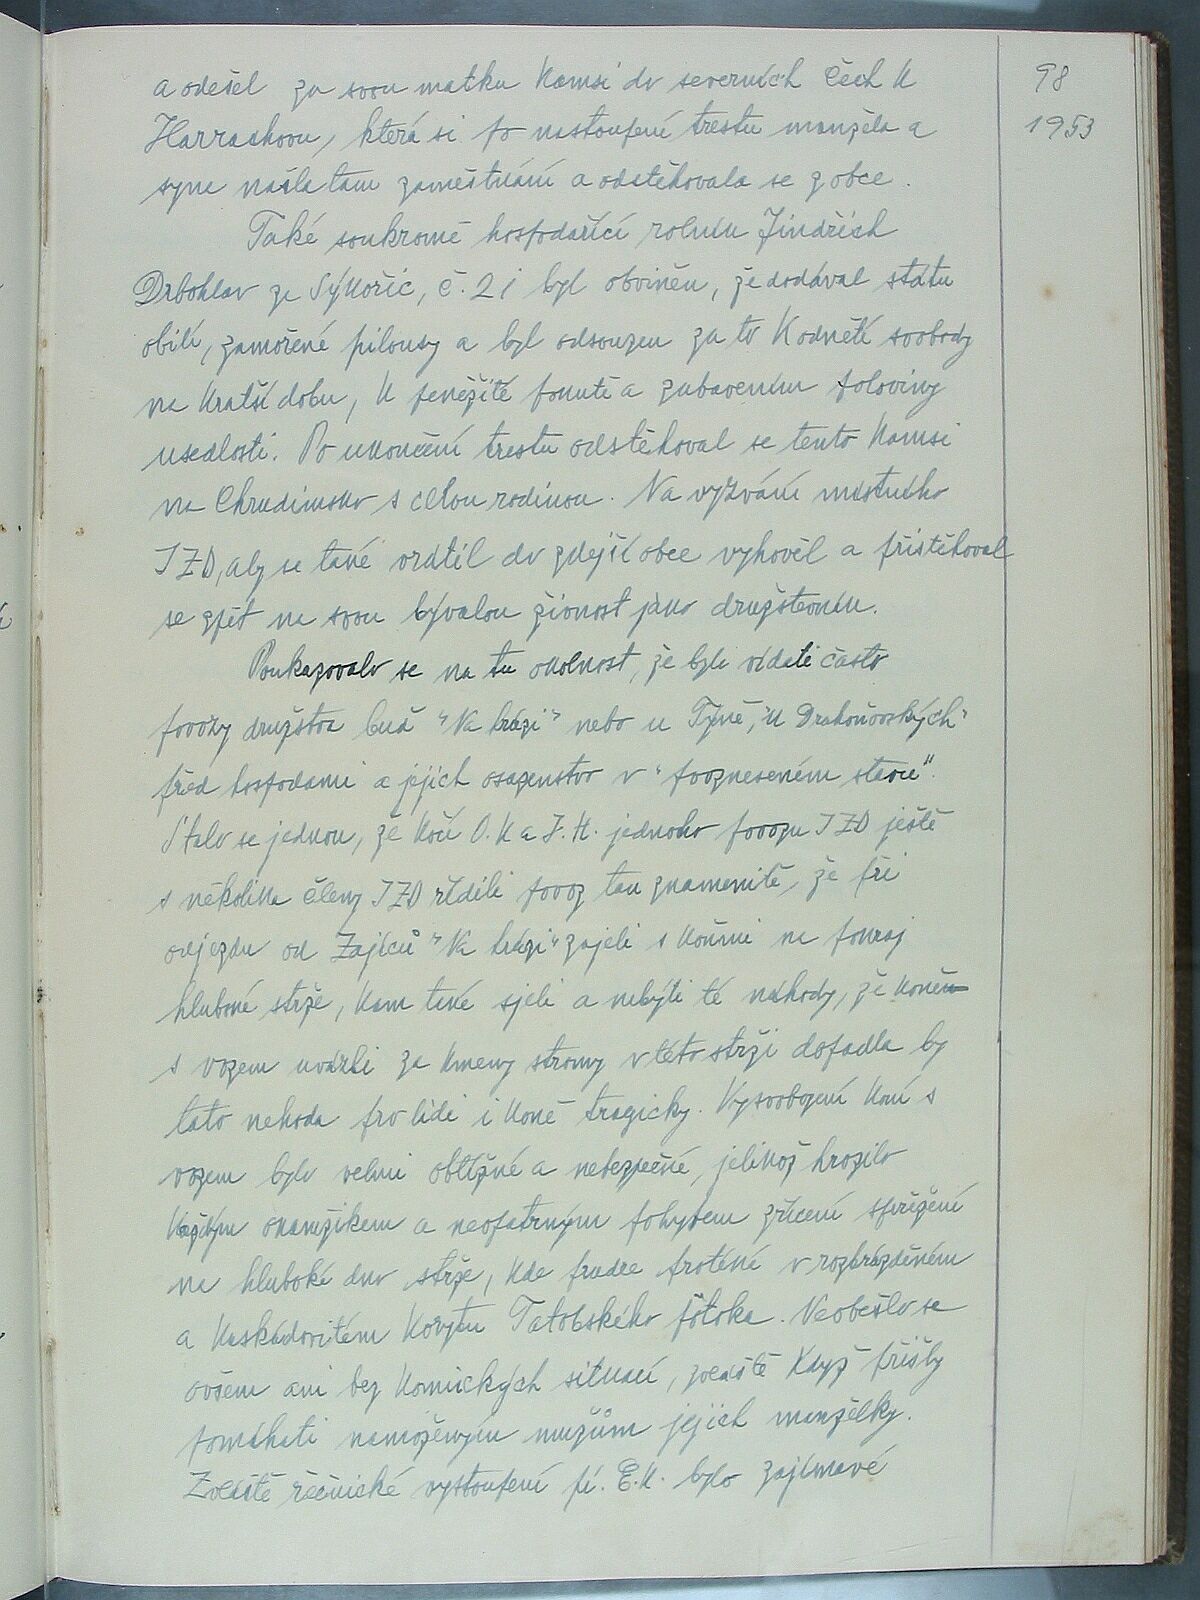 98
1953
a odešel za svou matku kamsi do severních Čech k
Harrachovu, která si po nastoupení trestu manžela a
syna našla tam zaměstnání a odstěhovala se z obce.
Také soukromě hospodařící rolník Jindřich
Drbohlav ze Sýkořic, č. 21 byl obviněn, že dodával státu
obilí, zamořené pilousy a byl odsouzen za to k odnětí svobody
na kratší dobu, k peněžité pokutě a zabavením poloviny
usedlosti. Po ukončení trestu odstěhoval se tento kamsi
na Chrudimsko s celou rodinou. Na vyzvání místního
JZD, aby se také vrátil do zdejší obce vyhověl a přistěhoval
se zpět na svou bývalou živnost jako družstevník.
Poukazovalo se na tu okolnost, že byli vídati často
povozy družstva buď "Na hrázi" nebo u Týně, "U Drahoňovských"
před hospodami a jejich osazenstvo v "povzneseném stavu".
Stalo se jednou, že kočí O.K a J.H. jednoho povozu JZD ještě
s několika členy JZD řídili povoz tak znamenitě, že při
odjezdu od Zajíců "Na hrázi" zajeli s koňmi na pokraj
hluboké strže, kam také sjeli a nebýti té náhody, že koně
s vozem uvázli za kmeny stromy v této strži dopadla by
tato nehoda pro lidi i koně tragicky. Vysvobození koní s
vozem bylo velmi obtížné a nebezpečné, jelikož hrozilo
každým okamžikem a neopatrným pohybem zřícení spřežení
na hluboké dno strže, kde prudce protéká v rozbrázděném
a kaskádovitém korytu Tatobského potoka. Neobešlo se
ovšem ani bez komických situací, zvláště když přišly
pomáhati namoženým mužům jejich manželky.
Zvláště řečnické vystoupení pí. E.K. bylo zajímavé